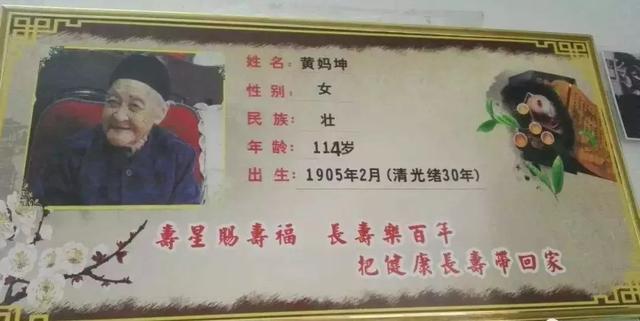 姓名：黄妈坤
性别：女
民族：壮
年龄：114岁
出生：1905年2月(清光绪30年)
壽星賜壽福 長壽樂百年
把健康長壽帶回家